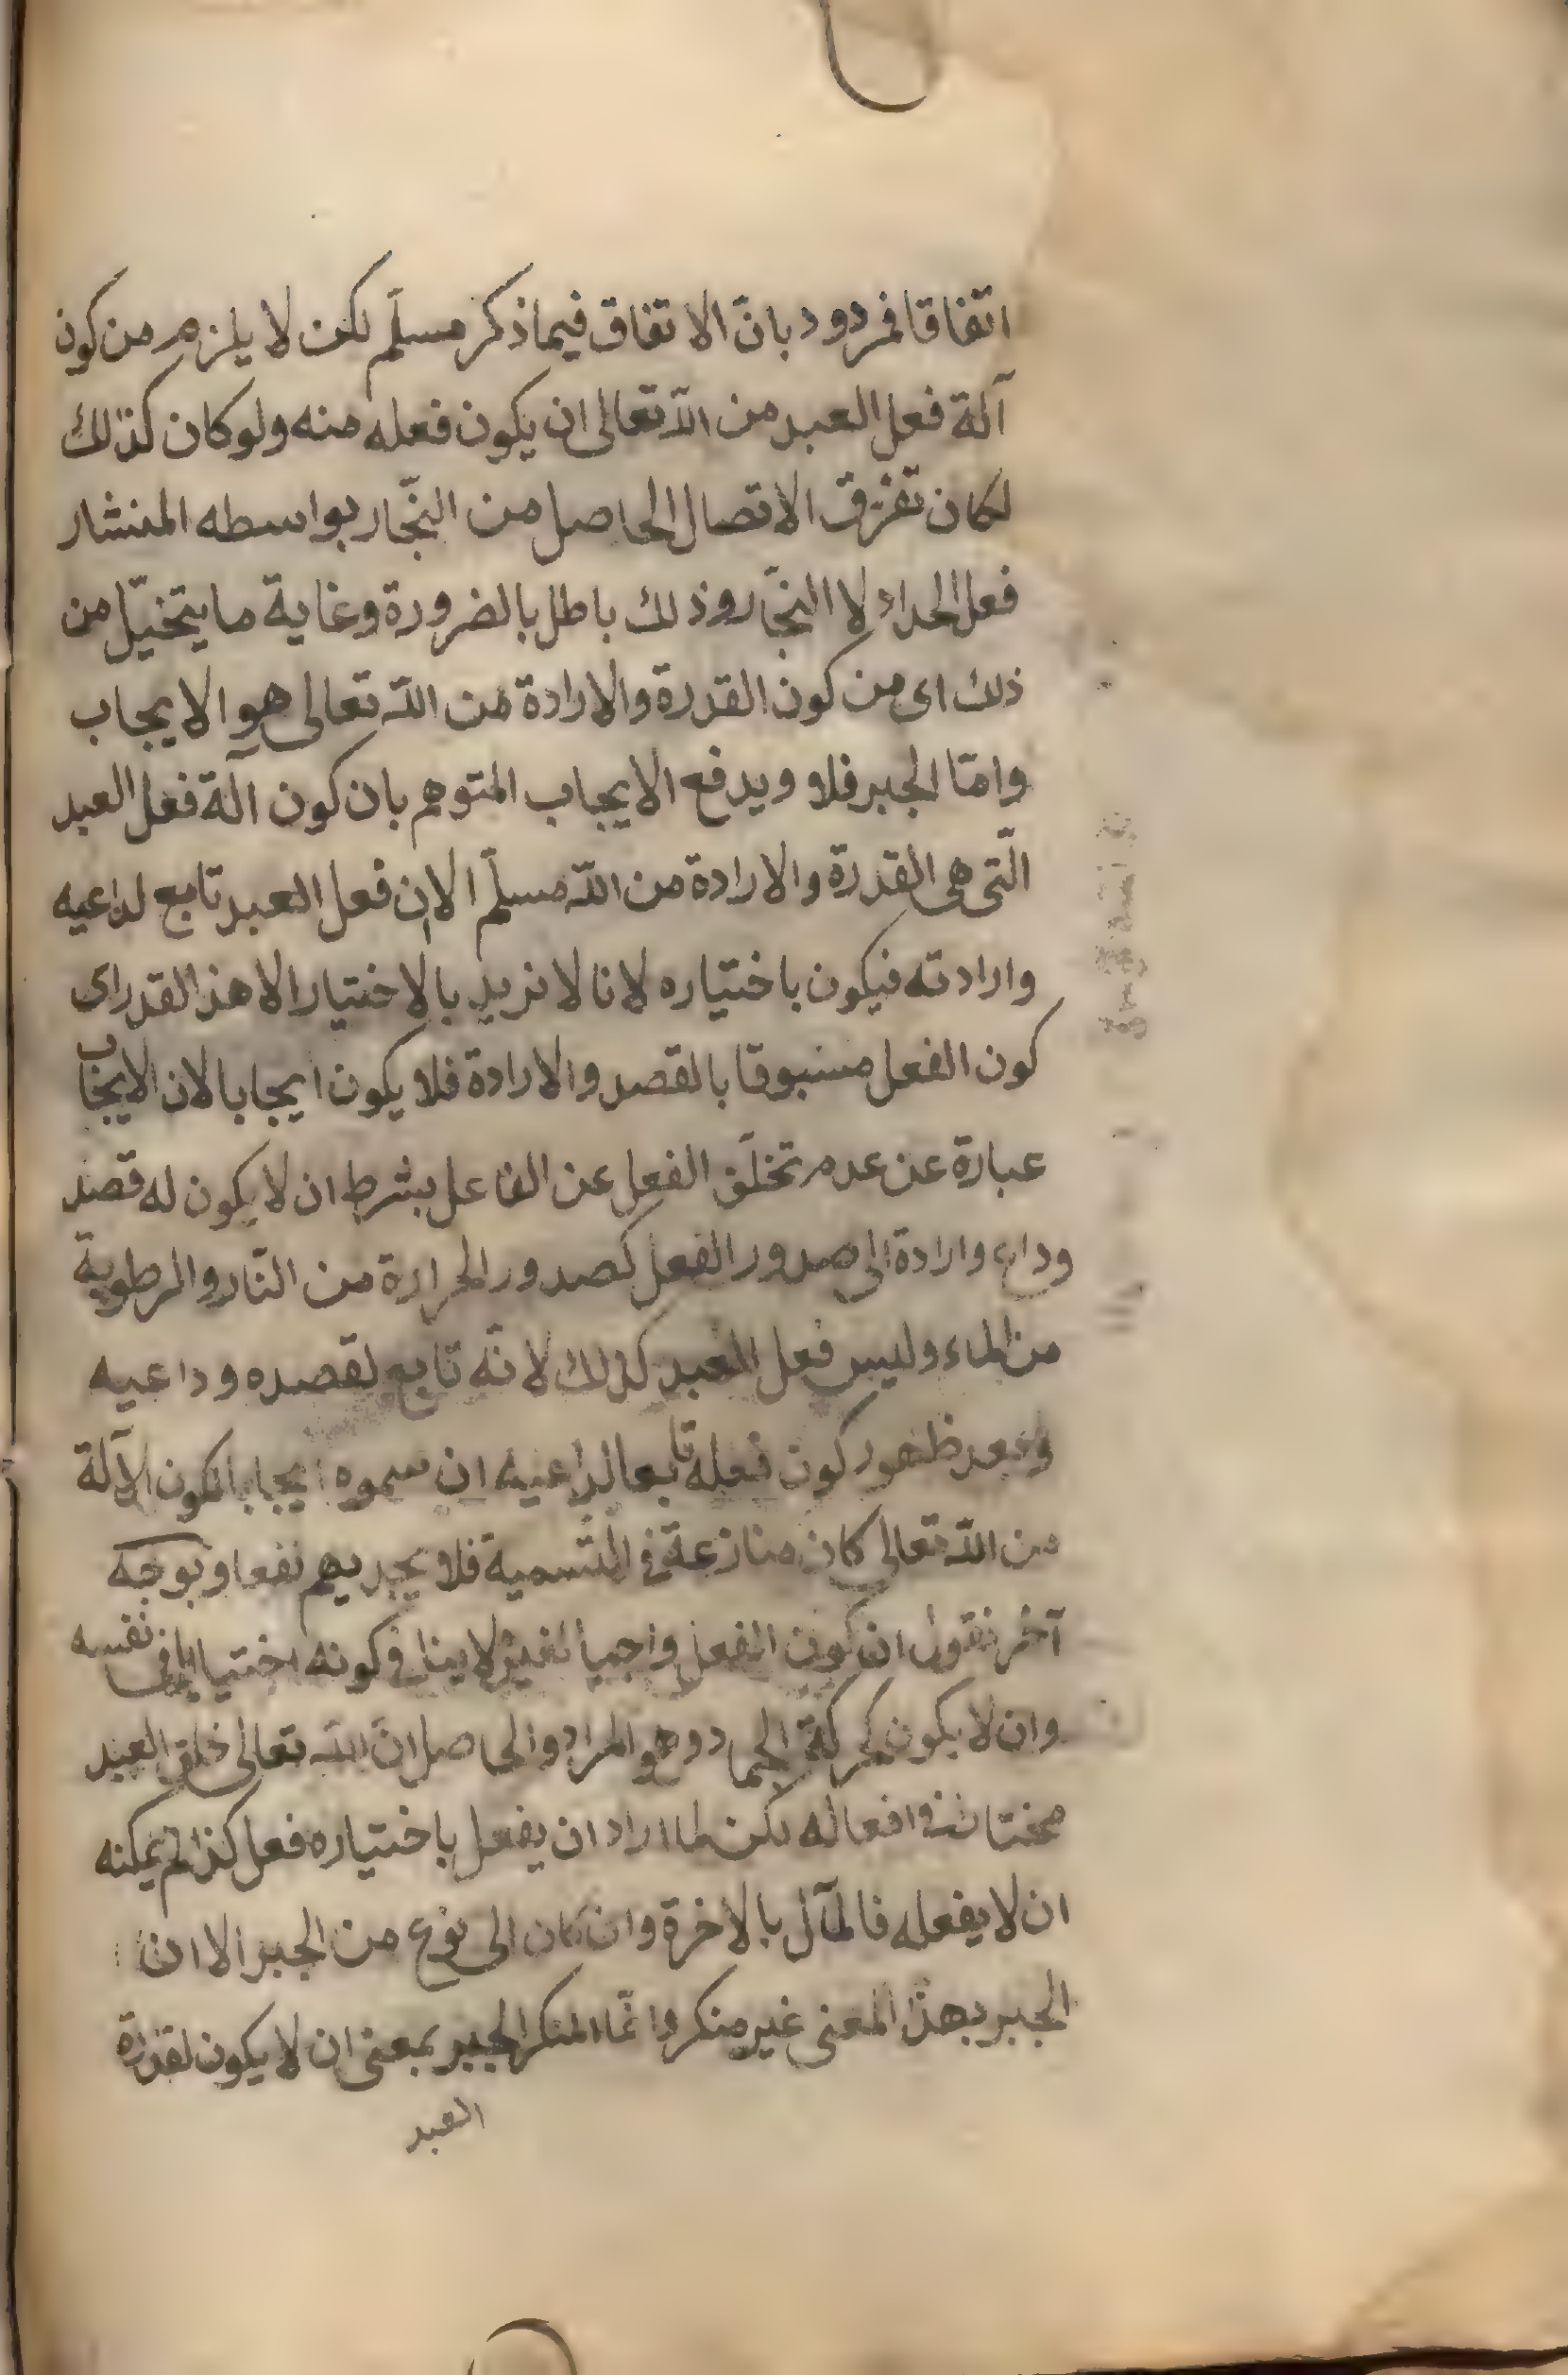 اتفاقا فمردود بانّ الاتفاق فيما ذكر مسلّم لكن لا يلزم من كون
آلة فعل العبد من الله تعالى ان يكون فعله منه ولو كان كذلك
لكان تفرّق الاتصال الحاصل من النجّار بواسطه المنشار
فعل الحداد لا النجّار وذلك باطل بالضرورة وغاية ما يتخيّل من
ذلك اى من كون القدرة والارادة من الله تعالى هو الايجاب
وامّا الجبر فلا ويدفع الايجاب المتوهم بان كون آلة فعل العبد
الّتى هى القدرة والارادة من الله مسلّم الا ان فعل العبد تابع لداعيه
وارادته فيكون باختياره لانا لا نريد بالاختيار الا هذا القدر اى
كون الفعل مسبوقا بالقصد والارادة فلا يكون ايجابا لان الايجاب
عبارة عن عدم تخلّف الفعل عن الفاعل بشرط ان لا يكون له قصد
وداع وارادة الى صدور الفعل كصدور الحرارة من النّار والرطوبة
من الماء وليس فعل العبد كذلك لانّه تابع لقصده وداعيه
وبعد ظهور كون فعله تابعا لداعيه ان سموه ايجابا لكون الآلة
من الله تعالى كان منازعة فى التّسمية فلا يجديهم نفعا وبوجه
آخر نقول ان كون الفعل واجبا لغيره لا ينافى كونه اختياريا فى نفسه
وان لا يكون كحركة الجماد وهو المراد والحاصل انّ الله تعالى خلق العبد
مختارا فى افعاله لكن لما اراد ان يفعل باختياره فعل كذا لم يمكنه
ان لا يفعله فالمآل بالاخرة وان كان الى نوع من الجبر الا ان
الجبر بهذا المعنى غير منكر وانّما المنكر الجبر بمعنى ان لا يكون لقدرة
العبد